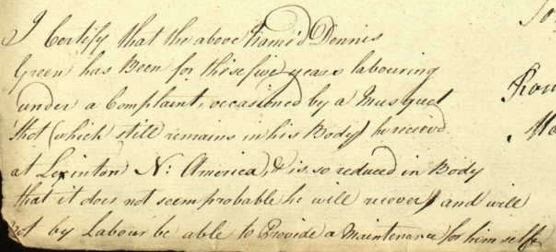 I Certify that the above Named Dennis
Green has Been for these five years labouring
under a Complaint, occasioned by a Musquet
shot (which still remains in his Body) he receivd
at Lexinton N: America, & is so reduced in Body
that it does not seem probable he will recover, and will
not by Labour be able to Provide a Maintenance for himself